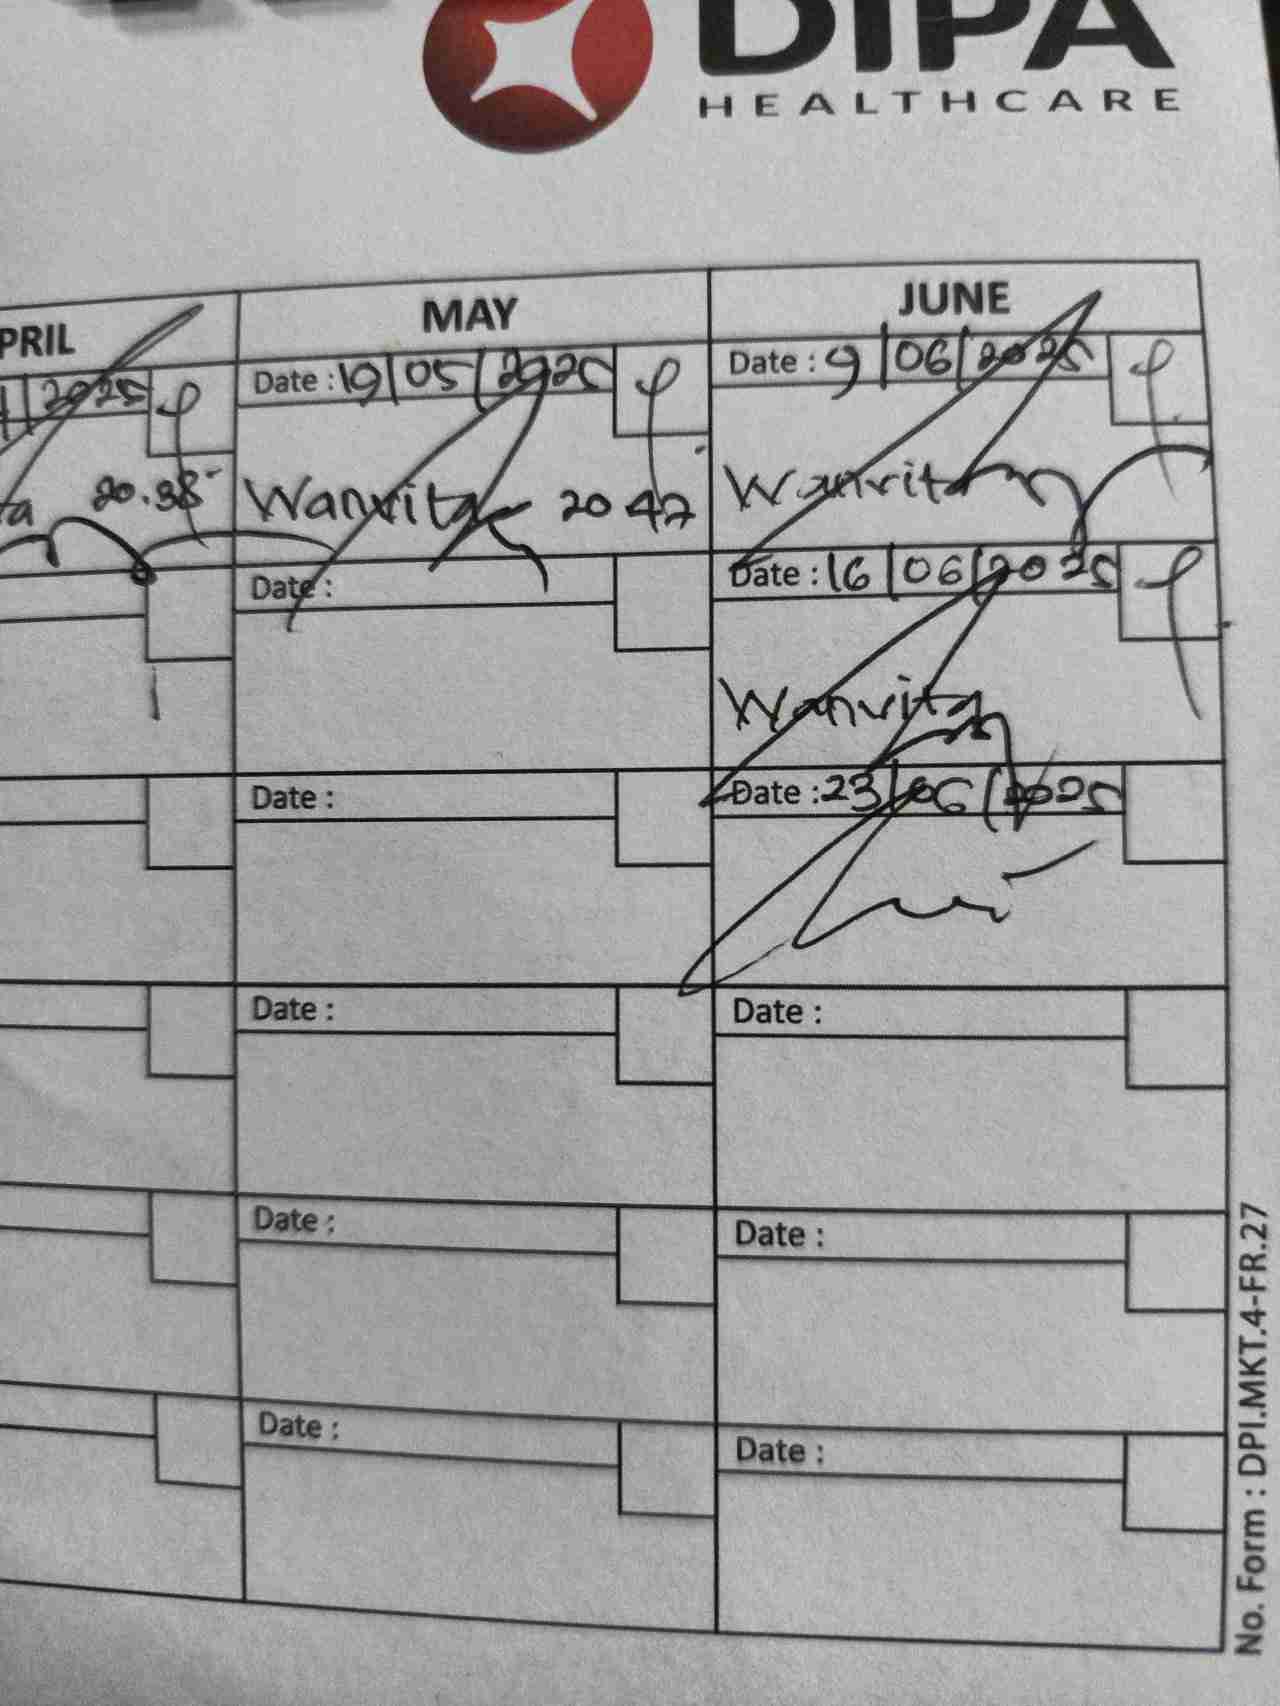 DIPA
HEALTHCARE
PRIL
MAY
JUNE
2025
Date : 19/05/2025
Date : 9/06/2025
20.38
Wanvita 20 42
Wanvita
Date :
Date : 16/06/2025
Wanvita
Date :
Date : 23/06/2025
Date :
Date :
Date :
Date :
Date :
Date :
No. Form : DPI.MKT.4-FR.27